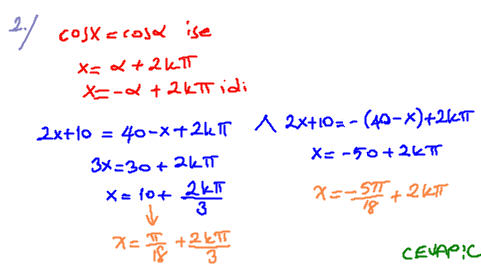 2./ cosx = cosα ise
x = α + 2kπ
x = -α + 2kπ idi
2x+10 = 40-x+2kπ ∧ 2x+10 = -(40-x)+2kπ
3x=30+2kπ
x = -50+2kπ
x = 10 + 2kπ/3
↓
x = π/18 + 2kπ/3
x = -5π/18 + 2kπ
CEVAP: C